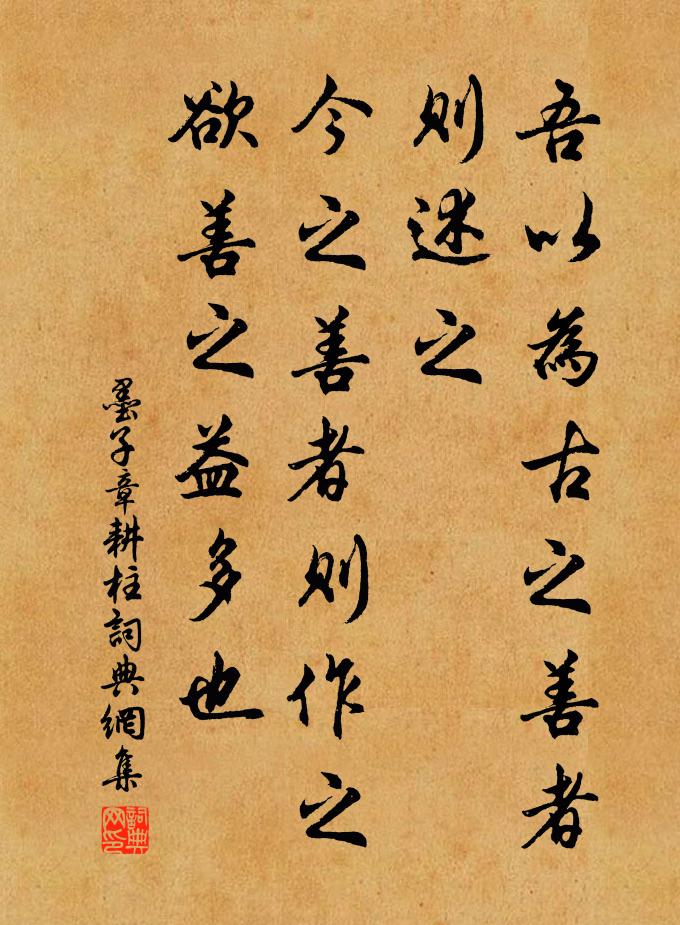 吾以為古之善者
則述之
今之善者則作之
欲善之益多也
墨子章耕柱詞典網集
詞典网印